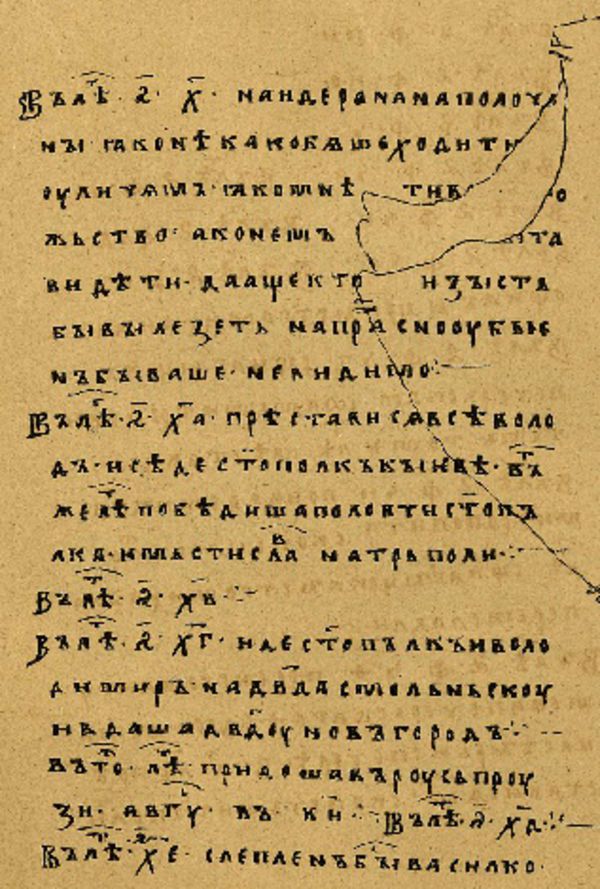 Въ лѣт҃ · ҂ѕ҃ · х҃ · на ндерѧ на мѧ полоу
нꙑ ꙗко нѣкако бѧше ходити
оулицѧмъ ꙗко мнѣти в о
жьство · ако нешъ ита
видѣти · да аще кто изъ иста
бꙑ вꙑлезеть напрⷭ҇асно оубьѥ
нъ бꙑваше · не видимо ·
Въ лѣт҃ · ҂ѕ҃ · х҃а · прѣстависѧ всѣволо
дъ · и сѣде ст҃ополкъ кꙑѥвѣ · въ т҃
же лѣт҃ побѣдиша половти ст҃опъ
лка · и мьстиславⷧ на трьполи ·
Въ лѣт҃ · ҂ѕ҃ · х҃в ·
Въ лѣт҃ · ҂ѕ҃ · х҃г · иде ст҃опълкъ и воло
димиръ на дв҃да смольньскоу
и вдаша дв҃доу новъгородъ ·
въ то лѣт҃ придоша въ роусь проу
зи · авгⷭ҇у · въ к҃и · Въ лѣт҃ · ҂ѕ҃ · х҃д ·
Въ лѣт҃ · ҂ѕ҃ х҃е · слепленъ бꙑ василко ·